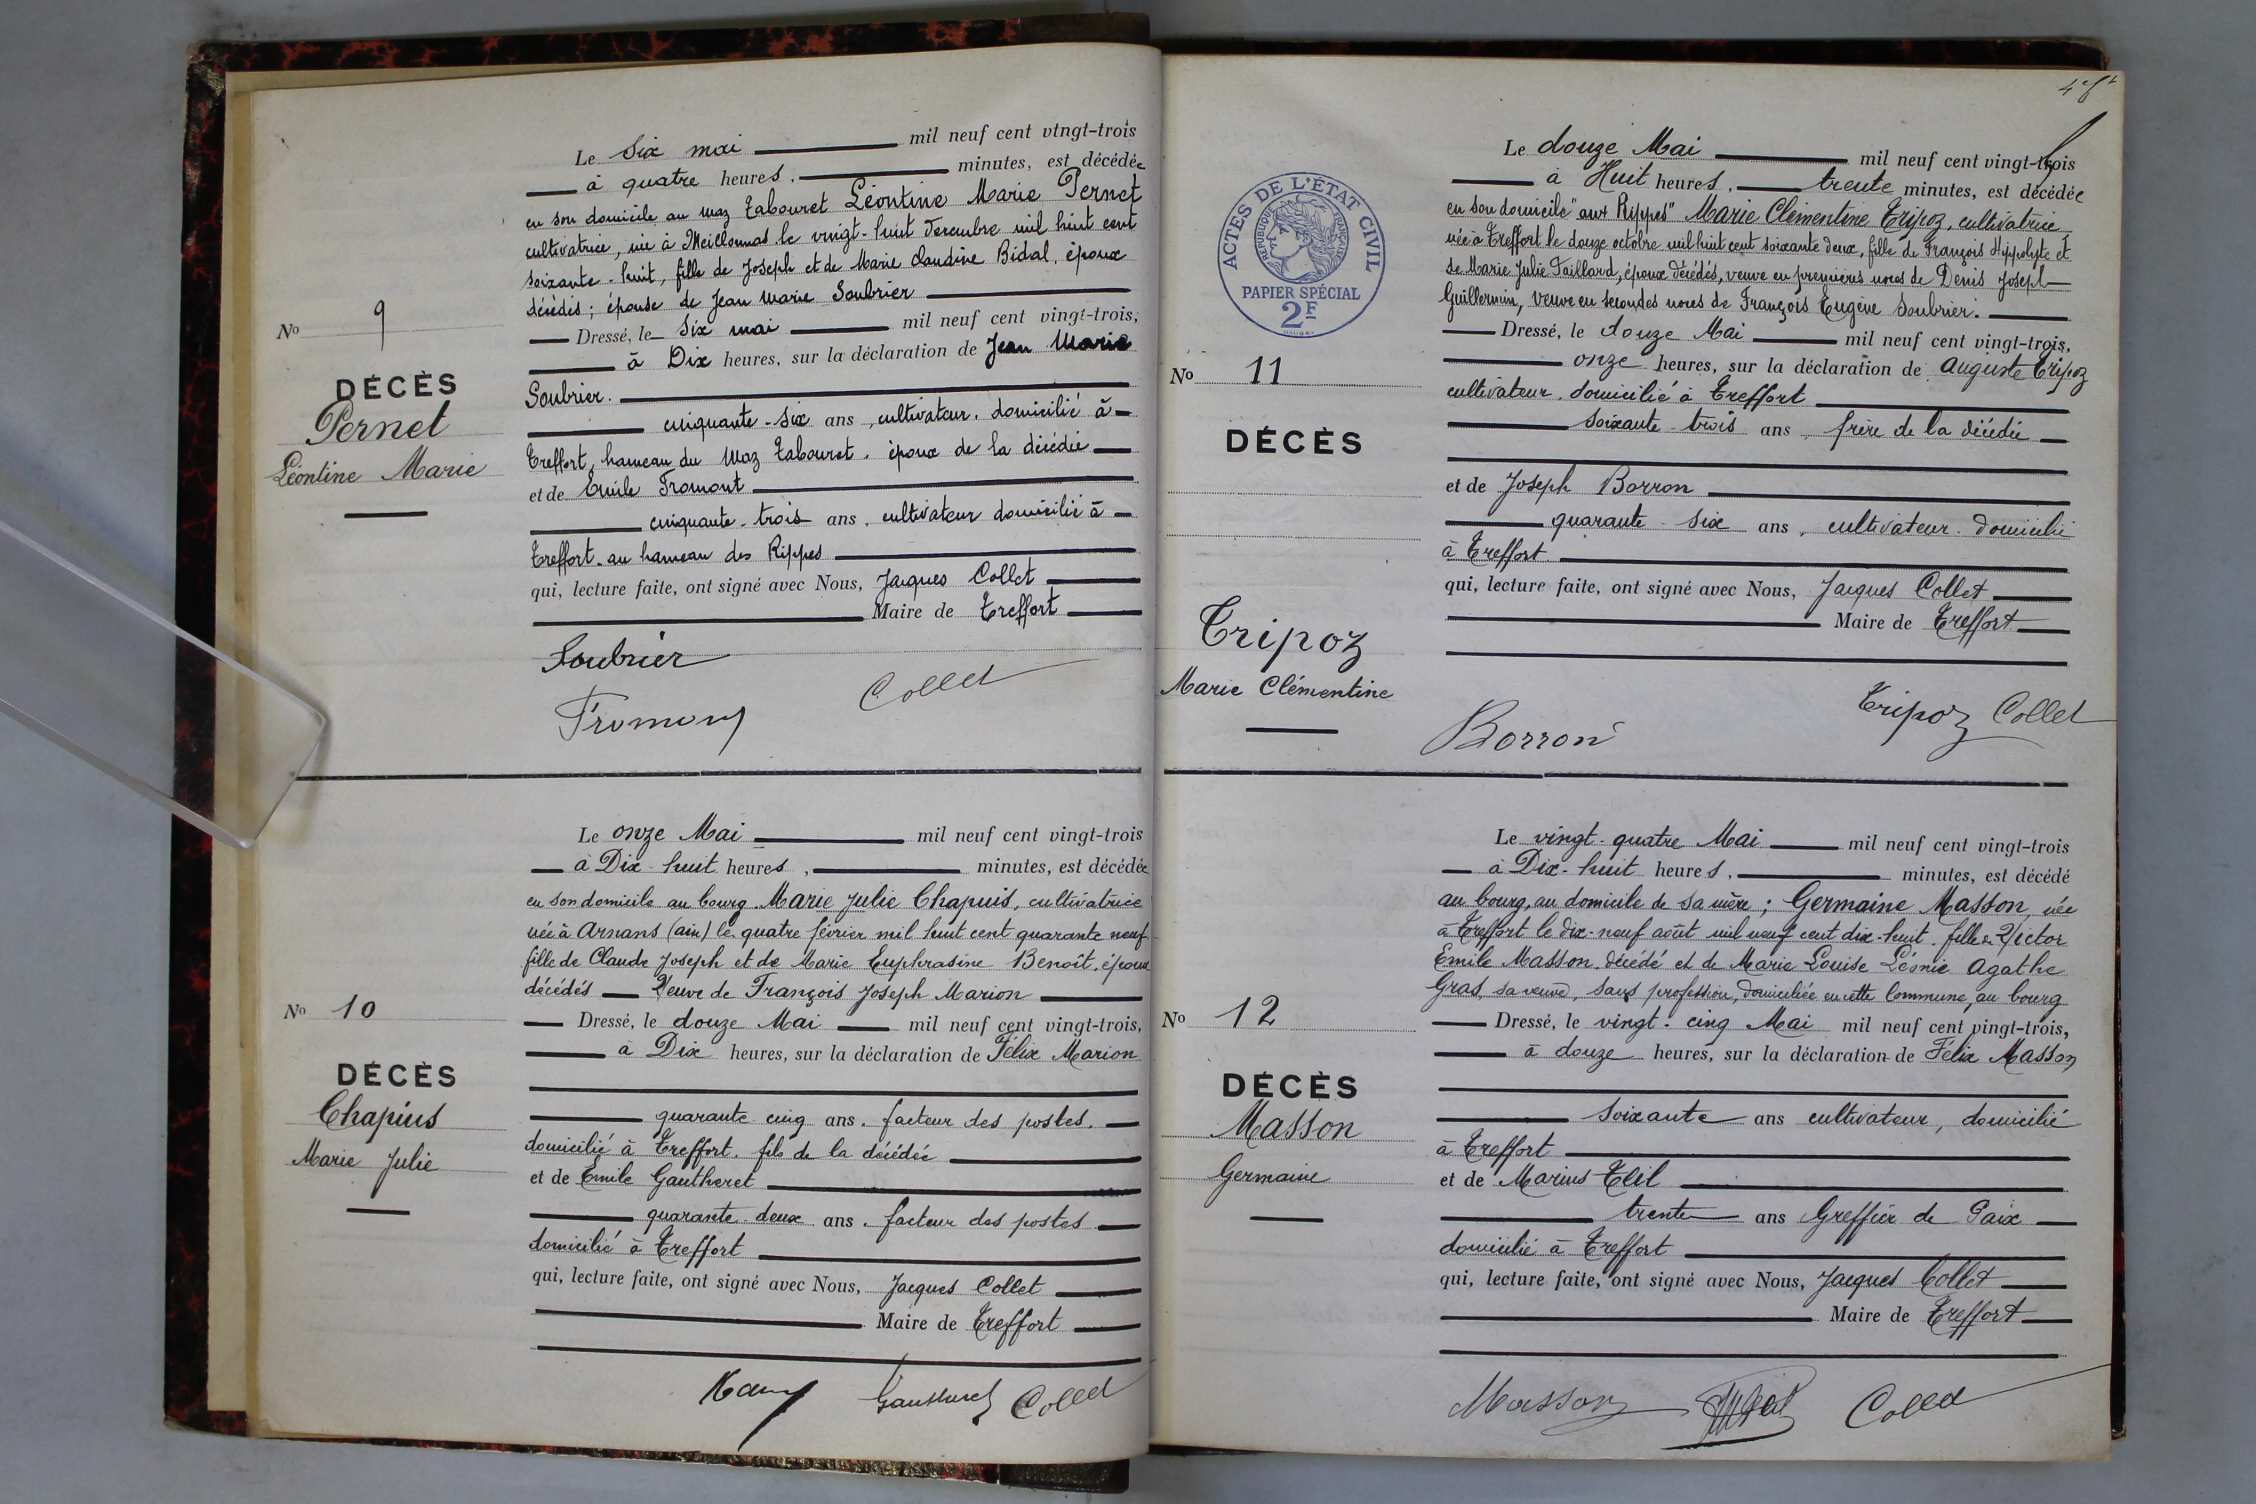 Le six mai mil neuf cent vingt-trois
à quatre heures, minutes, est décédée
en son domicile au Maz Tabouret Léontine Marie Pernet
cultivatrice, née à Meillonnas le vingt-huit Décembre mil huit cent
soixante-huit, fille de Joseph et de Marie Claudine Bidal, époux
décédés; épouse de Jean Marie Soubrier
N° 9
Dressé, le six mai mil neuf cent vingt-trois,
à Dix heures, sur la déclaration de Jean Marie
DÉCÈS
Soubrier.
Pernet
cinquante-six ans, cultivateur, domicilié à
Léontine Marie
Treffort, hameau du Maz Tabouret, époux de la décédée
et de Emile Fromont
cinquante-trois ans, cultivateur domicilié à
Treffort au hameau des Rippes
qui, lecture faite, ont signé avec Nous, Jacques Collet
Maire de Treffort
Soubrier
Collet
Fromont
Le onze Mai mil neuf cent vingt-trois
à Dix-huit heures, minutes, est décédée
en son domicile au bourg Marie Julie Chapuis, cultivatrice
née à Arnans (ain) le quatre février mil huit cent quarante neuf
fille de Claude Joseph et de Marie Euphrasine Benoît, époux
décédés Veuve de François Joseph Marion
N° 10
Dressé, le douze Mai mil neuf cent vingt-trois,
à Dix heures, sur la déclaration de Félix Marion
DÉCÈS
Chapuis
quarante cinq ans, facteur des postes,
Marie Julie
domicilié à Treffort, fils de la décédée
et de Emile Gautheret
quarante-deux ans, facteur des postes
domicilié à Treffort
qui, lecture faite, ont signé avec Nous, Jacques Collet
Maire de Treffort
Gautheret Collet
Le douze Mai mil neuf cent vingt-trois
à Huit heures, trente minutes, est décédée
en son domicile "aux Rippes" Marie Clémentine Tripoz, cultivatrice,
née à Treffort le douze octobre mil huit cent soixante deux, fille de François Hippolyte et
de Marie Julie Taillard, époux décédés, veuve en premières noces de Denis Joseph
Guillermin, veuve en secondes noces de François Eugène Soubrier.
ACTES DE L'ÉTAT CIVIL
RÉPUBLIQUE FRANÇAISE
PAPIER SPÉCIAL
2F
Dressé, le douze Mai mil neuf cent vingt-trois,
onze heures, sur la déclaration de Auguste Tripoz
N° 11
cultivateur, domicilié à Treffort
soixante-trois ans, frère de la décédée
DÉCÈS
et de Joseph Borron
quarante-six ans, cultivateur domicilié
à Treffort
qui, lecture faite, ont signé avec Nous, Jacques Collet
Maire de Treffort
Tripoz
Marie Clémentine
Tripoz Collet
Borron
Le vingt-quatre Mai mil neuf cent vingt-trois
à Dix-huit heures, minutes, est décédé
au bourg, au domicile de sa mère; Germaine Masson, née
à Treffort le dix-neuf août mil neuf cent dix-huit, fille de Victor
Emile Masson décédé et de Marie Louise Léonie Agathe
Gras, sa veuve, sans profession, domiciliée en cette Commune, au bourg
N° 12
Dressé, le vingt-cinq Mai mil neuf cent vingt-trois,
à douze heures, sur la déclaration de Félix Masson
DÉCÈS
Masson
soixante ans cultivateur, domicilié
à Treffort
Germaine
et de Marius
trente ans Greffier de Paix
domicilié à Treffort
qui, lecture faite, ont signé avec Nous, Jacques Collet
Maire de Treffort
Masson Collet